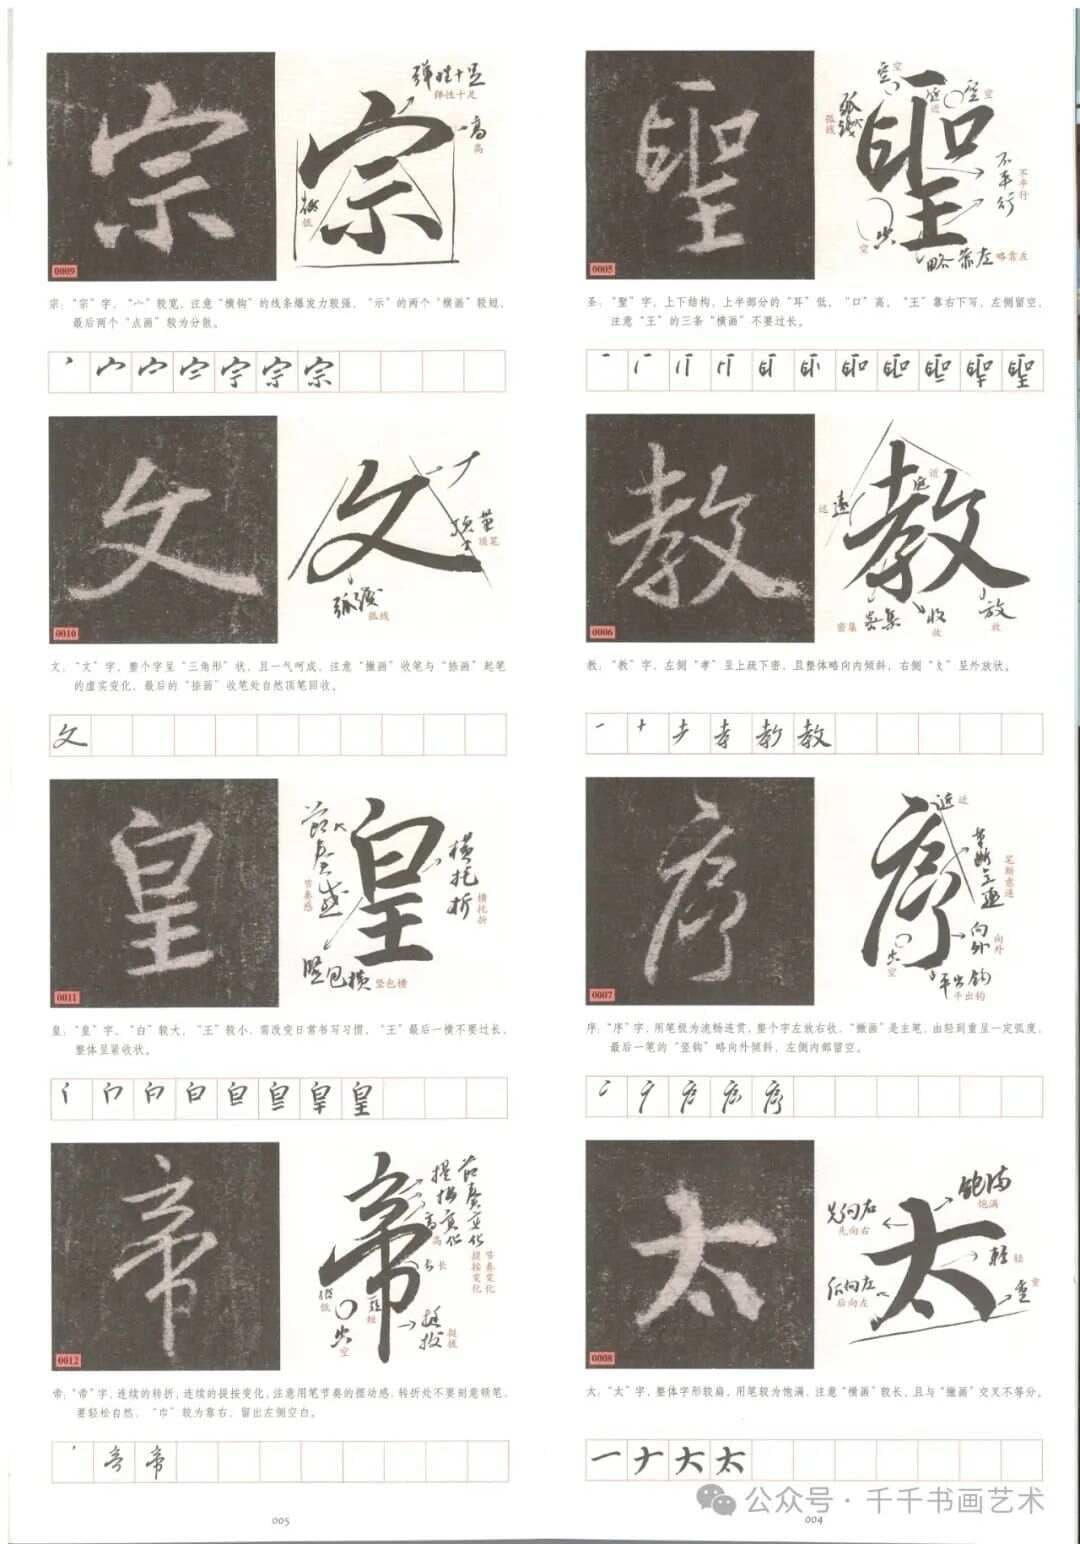 宗
弹性十足
弹性十足
高
高
低
低
0009
宗："宗"字，"宀"较宽，注意"横钩"的线条爆发力较强，"示"的两个"横画"较短，
最后两个"点画"较为分散。
宗
文
顶笔
顶笔
弧线
弧线
0010
文："文"字，整个字呈"三角形"状，且一气呵成，注意"撇画"收笔与"捺画"起笔
的虚实变化，最后的"捺画"收笔处自然顶笔回收。
文
皇
节奏感
节奏感
横托折
横托折
竖包横
竖包横
0011
皇："皇"字，"白"较大，"王"较小，需改变日常书写习惯，"王"最后一横不要过长，
整体呈紧收状。
皇
帝
节奏变化
节奏变化
提按变化
提按变化
高
高
长
长
低
低
短
短
空
空
挺拔
挺拔
0012
帝："帝"字，连续的转折，连续的提按变化，注意用笔节奏的摆动感，转折处不要刻意顿笔，
要轻松自然，"巾"较为靠右，留出左侧空白。
帝
005
聖
空
空
弧线
弧线
近
近
空
空
不平行
不平行
空
空
略靠左
略靠左
0005
圣："聖"字，上下结构，上半部分的"耳"低，"口"高，"王"靠右下写，左侧留空，
注意"王"的三条"横画"不要过长。
聖
教
远
远
近
近
密集
密集
收
收
放
放
0006
教："教"字，左侧"孝"呈上疏下密，且整体略向内倾斜，右侧"攵"呈外放状。
教
序
近
近
笔断意连
笔断意连
向外
向外
空
空
平出钩
平出钩
0007
序："序"字，用笔极为流畅连贯，整个字左放右收，"撇画"是主笔，由轻到重呈一定弧度，
最后一笔的"竖钩"略向外倾斜，左侧内部留空。
序
太
先向右
先向右
饱满
饱满
轻
轻
后向左
后向左
重
重
0008
太："太"字，整体字形较扁，用笔较为饱满，注意"横画"较长，且与"撇画"交叉不等分。
一ナ大太
004
公众号·千千书画艺术